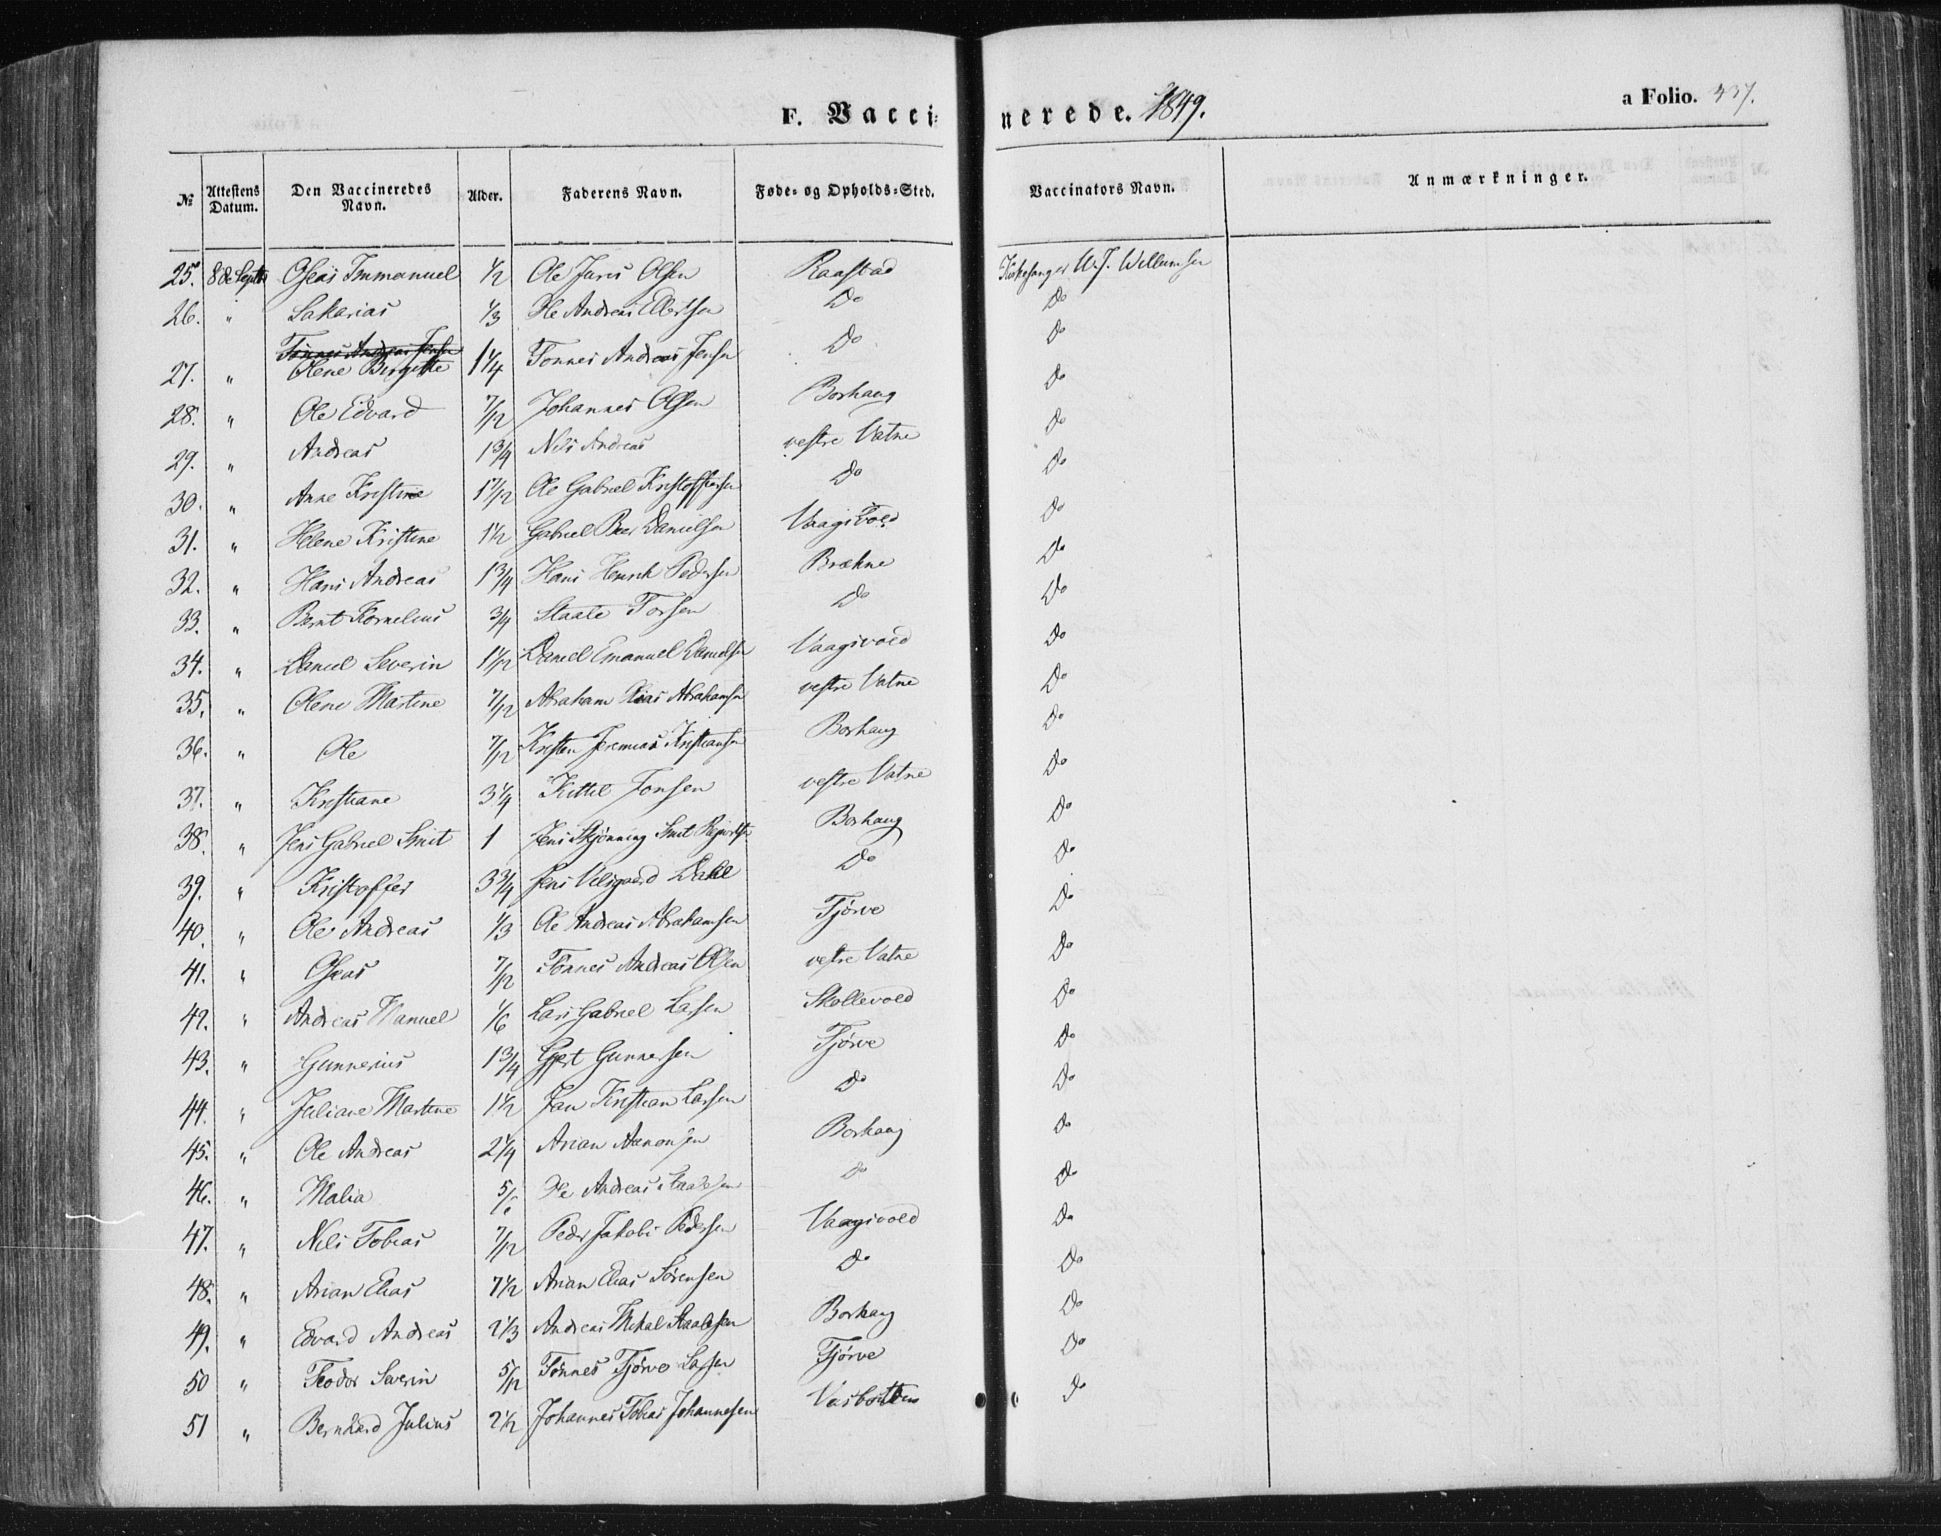 F. Vaccinerede. 1849.
a Folio. 437.
№ Attestens Datum. Den Vaccineredes Navn. Alder. Faderens Navn. Føde- og Opholds-Sted. Vaccinators Navn. Anmærkninger.
25. 8de Septbr Oseas Immanuel 1/2 Ole Jaris Olsen Raastad Kirkesanger Willumsen
26. " Sakarias 1/3 Ole Andreas Ellertsen Do Do
Tönnes Andreas Jensen
27. " Olene Birgitte 1 1/4 Tönnes Andreas Jensen Do Do
28. " Ole Edvard 7/12 Johannes Olsen Borhaug Do
29. " Andreas 1 3/4 Nils Andreas vestre Vatne Do
30. " Anne Kristine 1 7/12 Ole Gabriel Kristoffersen Do Do
31. " Helene Kristine 1 1/2 Gabriel Danielsen Vaagsvold Do
32. " Hans Andreas 1 3/4 Hans Henrik Pedersen Brækne Do
33. " Bernt Kornelius 3/4 Staale Torsen Do Do
34. " Daniel Severin 1 1/12 Daniel Emanuel Danielsen Vaagsvold Do
35. " Olene Martine 7/12 Abraham Elias Abrahamsen vestre Vatne Do
36. " Ole 7/12 Kristen Jeremias Kristiansen Borhaug Do
37. " Kristiane 3 1/4 Kittel Jonsen vestre Vatne Do
38. " Jens Gabriel Smit 1 Jens Skjönning Smit Borhaug Do
39. " Kristoffer 3 3/4 Jens Dahl Do Do
40. " Ole Andreas 1/3 Ole Andreas Abrahamsen Tjörve Do
41. " Oseas 7/12 Tönnes Andreas Olsen vestre Vatne Do
42. " Andreas Manuel 1/6 Lars Gabriel Larsen Skollevold Do
43. " Gunnerius 1 3/4 Gjert Gunnersen Tjörve Do
44. " Juliane Martine 1 1/2 Jan Kristian Larsen Do Do
45. " Ole Andreas 2 1/4 Arian Aanonsen Borhaug Do
46. " Malia Ole Andreas Do Do
47. " Nils Tobias 7/12 Peder Jakob Pedersen Vaagsvold Do
48. " Arian Elias 7 1/2 Arian Elias Sörensen Do Do
49. " Edvard Andreas 2 1/3 Andreas Mikal Staalesen Borhaug Do
50 " Teodor Severin 5/12 Tönnes Tjörve Larsen Tjörve Do
51 " Bernhard Julius 2 1/2 Johannes Tobias Johannesen Vasbotten Do